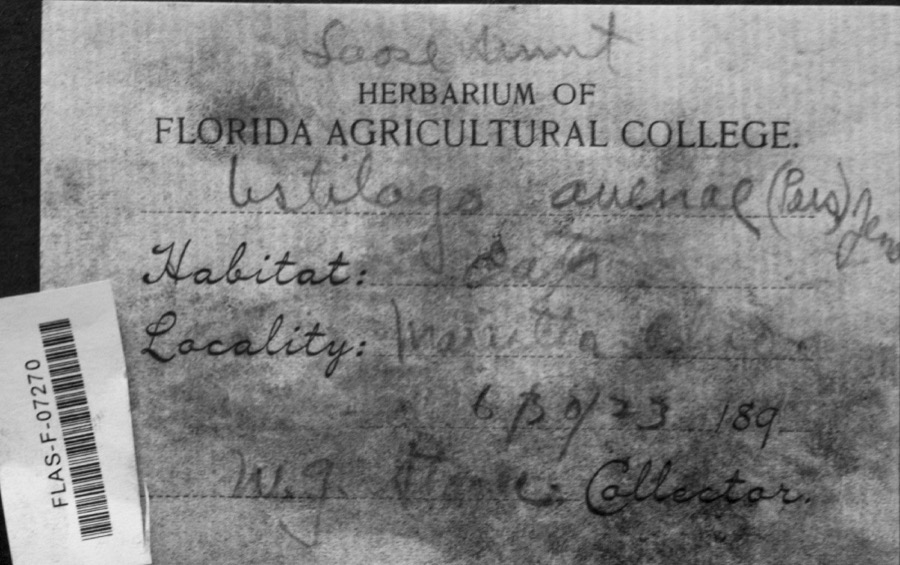 Loose Smut
HERBARIUM OF
FLORIDA AGRICULTURAL COLLEGE.
Ustilago avenae (Pers) Jens
Habitat: Oats
Locality: Marietta
6/30/23 189
W. J. Collector.
FLAS-F-07270